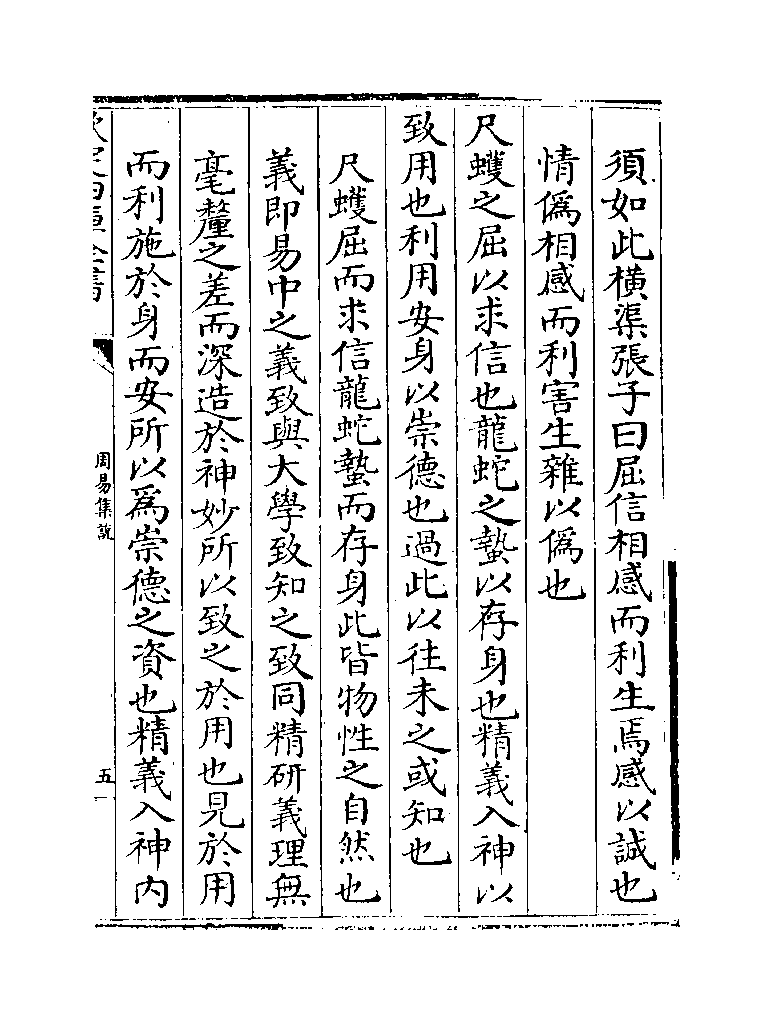 須如此橫渠張子曰屈信相感而利生焉感以誠也
情偽相感而利害生雜以偽也
尺蠖之屈以求信也龍蛇之蟄以存身也精義入神以
致用也利用安身以崇德也過此以往未之或知也
尺蠖屈而求信龍蛇蟄而存身此皆物性之自然也
義即易中之義致與大學致知之致同精研義理無
毫釐之差而深造於神妙所以致之於用也見於用
而利施於身而安所以為崇德之資也精義入神內
欽定四庫全書
周易集說
五